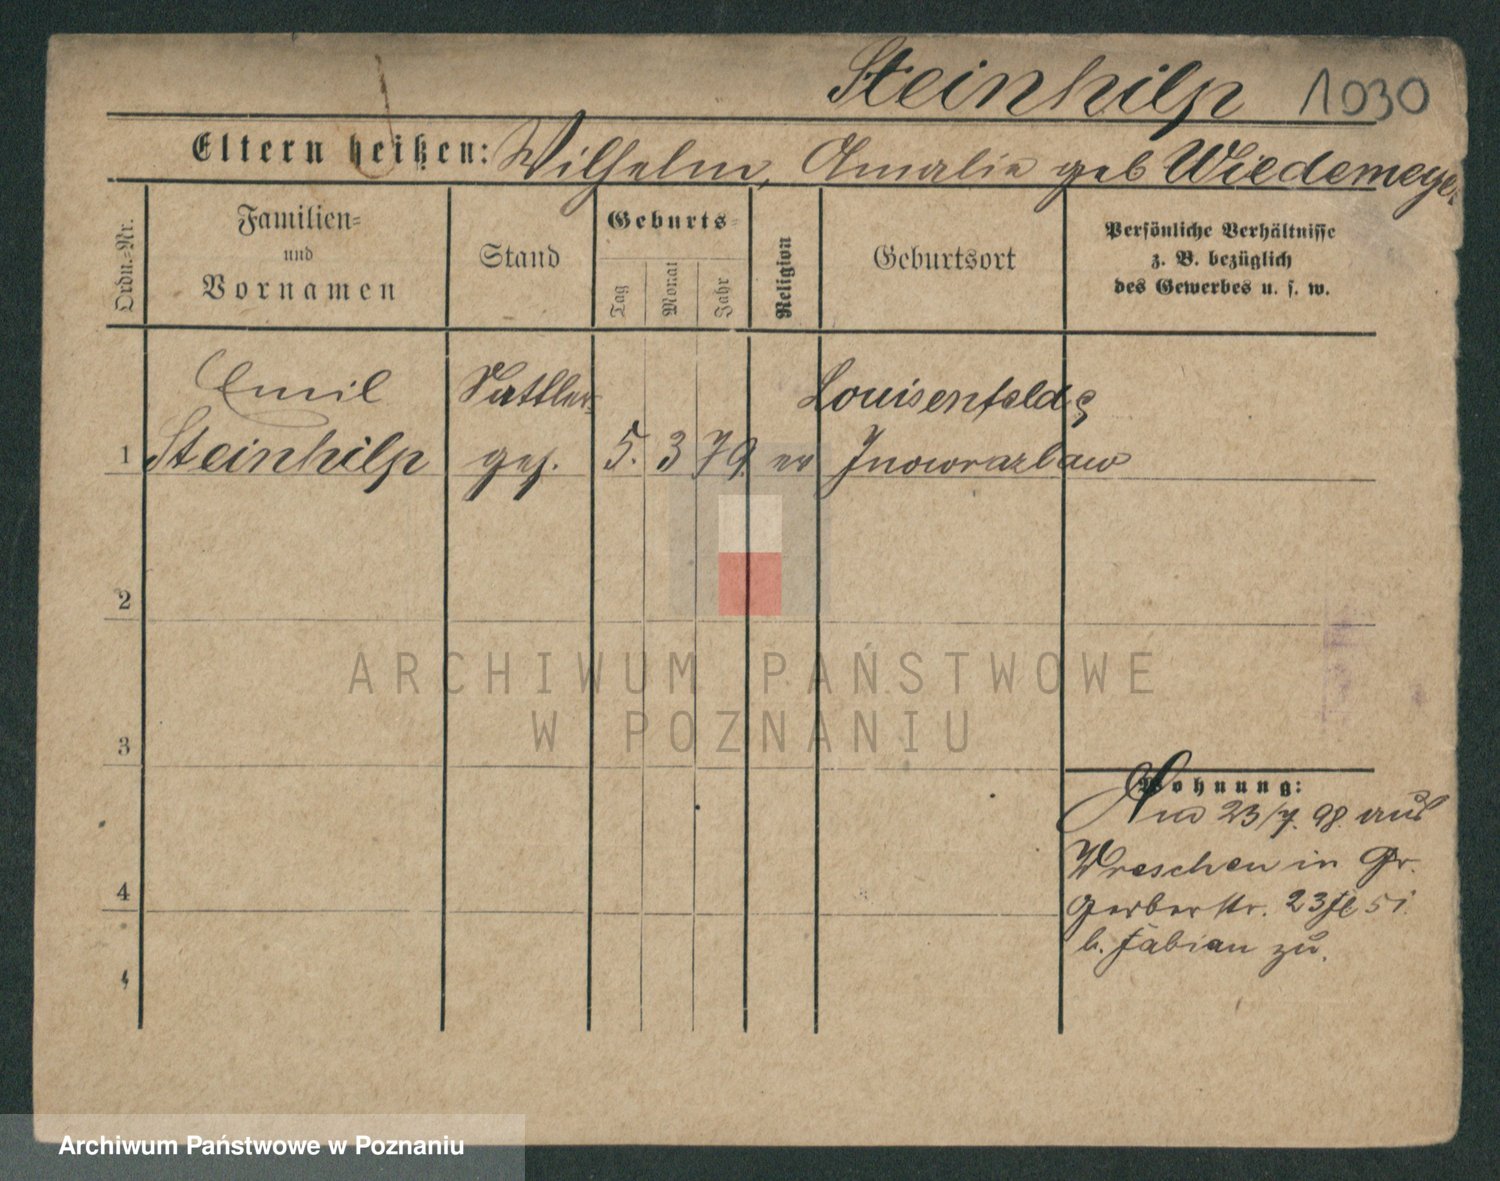 Steinhilp 1030
Eltern heißen: Wilhelm, Amalie geb Wiedemeyer
Ordn.-Nr.
Familien-
und
Vornamen
Stand
Geburts-
Tag
Monat
Jahr
Religion
Geburtsort
Persönliche Verhältnisse
z. B. bezüglich
des Gewerbes u. s. w.
Emil Sattler- Louisenfelde
1 Steinhilp ges. 5. 3 79. ev Inowrazlaw
2
3
4
Wohnung:
Am 23/7. 98. aus
Wreschen in Gr.
Gerberstr. 23
b. Fabian zu.
ARCHIWUM PAŃSTWOWE
W POZNANIU
Archiwum Państwowe w Poznaniu